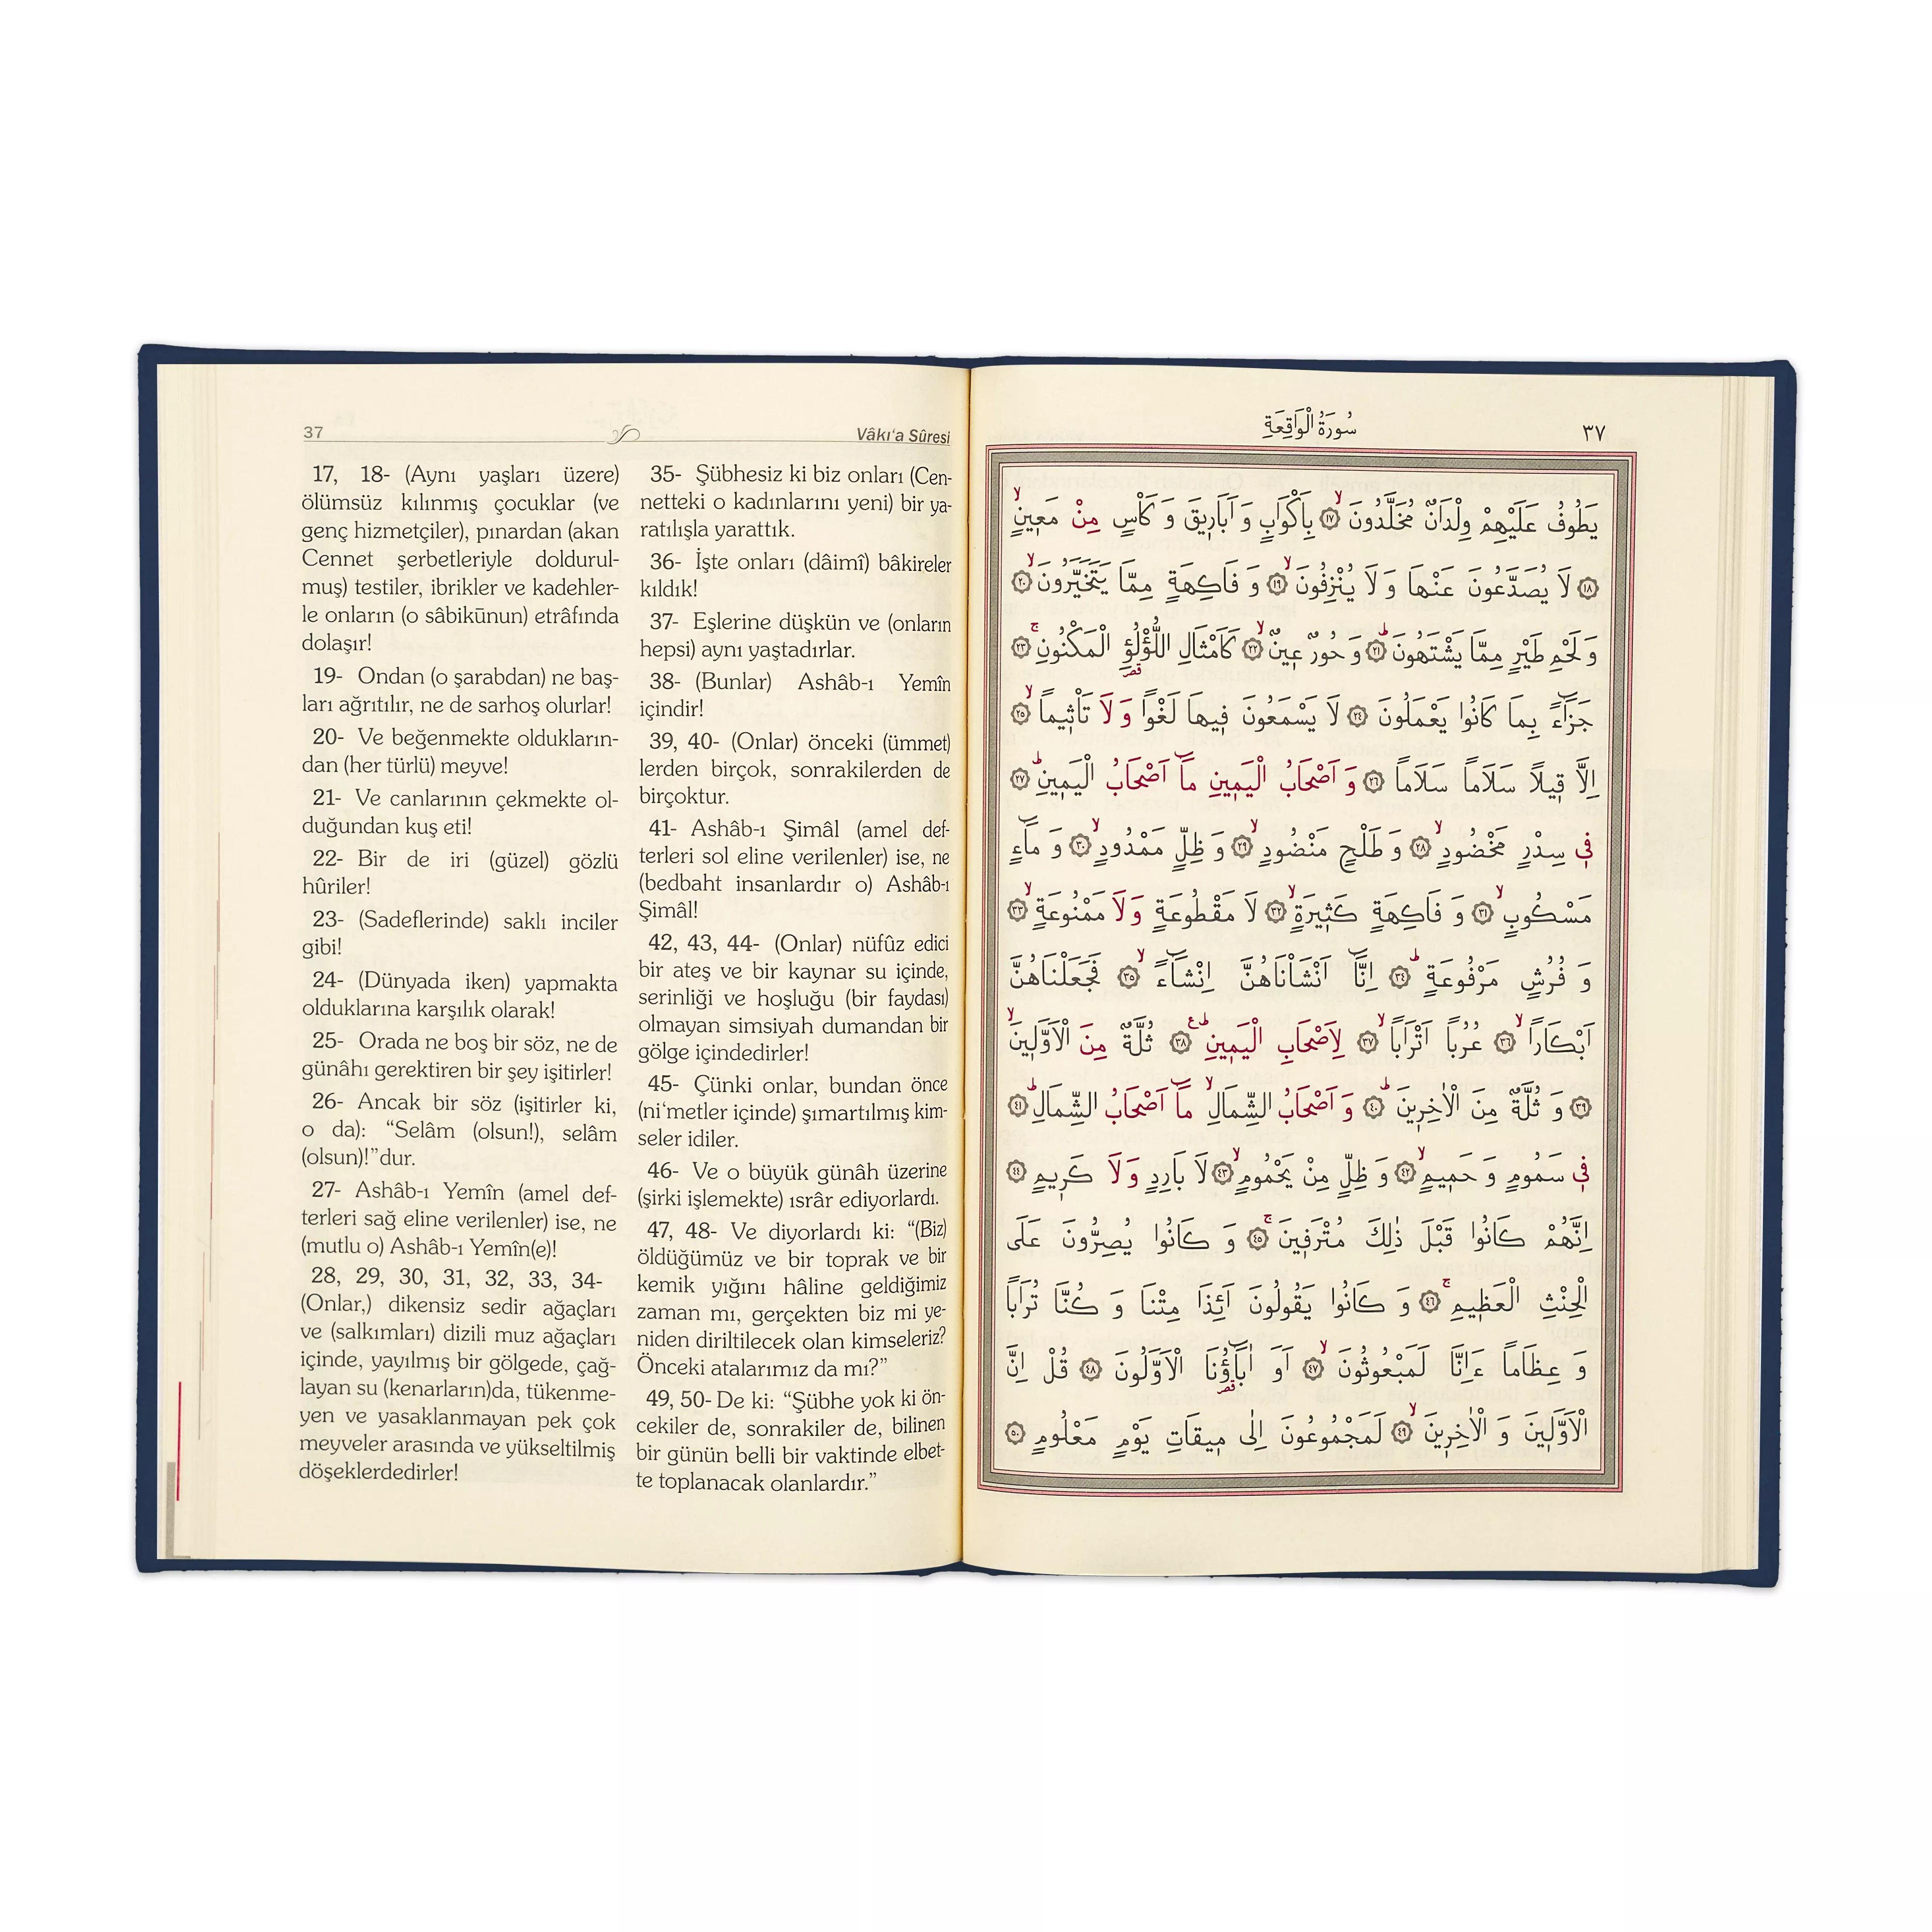 37
Vâkı‘a Sûresi
17, 18- (Aynı yaşları üzere)
ölümsüz kılınmış çocuklar (ve
genç hizmetçiler), pınardan (akan
Cennet şerbetleriyle doldurul-
muş) testiler, ibrikler ve kadehler-
le onların (o sâbikūnun) etrâfında
dolaşır!
19- Ondan (o şarabdan) ne baş-
ları ağrıtılır, ne de sarhoş olurlar!
20- Ve beğenmekte oldukların-
dan (her türlü) meyve!
21- Ve canlarının çekmekte ol-
duğundan kuş eti!
22- Bir de iri (güzel) gözlü
hûriler!
23- (Sadeflerinde) saklı inciler
gibi!
24- (Dünyada iken) yapmakta
olduklarına karşılık olarak!
25- Orada ne boş bir söz, ne de
günâhı gerektiren bir şey işitirler!
26- Ancak bir söz (işitirler ki,
o da): “Selâm (olsun!), selâm
(olsun)!”dur.
27- Ashâb-ı Yemîn (amel def-
terleri sağ eline verilenler) ise, ne
(mutlu o) Ashâb-ı Yemîn(e)!
28, 29, 30, 31, 32, 33, 34-
(Onlar,) dikensiz sedir ağaçları
ve (salkımları) dizili muz ağaçları
içinde, yayılmış bir gölgede, çağ-
layan su (kenarların)da, tükenme-
yen ve yasaklanmayan pek çok
meyveler arasında ve yükseltilmiş
döşeklerdedirler!
35- Şübhesiz ki biz onları (Cen-
netteki o kadınlarını yeni) bir ya-
ratılışla yarattık.
36- İşte onları (dâimî) bâkireler
kıldık!
37- Eşlerine düşkün ve (onların
hepsi) aynı yaştadırlar.
38- (Bunlar) Ashâb-ı Yemîn
içindir!
39, 40- (Onlar) önceki (ümmet)
lerden birçok, sonrakilerden de
birçoktur.
41- Ashâb-ı Şimâl (amel def-
terleri sol eline verilenler) ise, ne
(bedbaht insanlardır o) Ashâb-ı
Şimâl!
42, 43, 44- (Onlar) nüfûz edici
bir ateş ve bir kaynar su içinde,
serinliği ve hoşluğu (bir faydası)
olmayan simsiyah dumandan bir
gölge içindedirler!
45- Çünki onlar, bundan önce
(ni‘metler içinde) şımartılmış kim-
seler idiler.
46- Ve o büyük günâh üzerine
(şirki işlemekte) ısrâr ediyorlardı.
47, 48- Ve diyorlardı ki: “(Biz)
öldüğümüz ve bir toprak ve bir
kemik yığını hâline geldiğimiz
zaman mı, gerçekten biz mi ye-
niden diriltilecek olan kimseleriz?
Önceki atalarımız da mı?”
49, 50- De ki: “Şübhe yok ki ön-
cekiler de, sonrakiler de, bilinen
bir günün belli bir vaktinde elbet-
te toplanacak olanlardır.”
سُورَةُ الْوَاقِعَةِ
٣٧
يَطُوفُ عَلَيْهِمْ وِلْدَانٌ مُخَلَّدُونَۙ ﴿١٧﴾ بِاَكْوَابٍ وَ اَبَارٖيقَ وَ كَأْسٍ مِنْ مَعٖينٍۙ
﴿١٨﴾ لَا يُصَدَّعُونَ عَنْهَا وَ لَا يُنْزِفُونَۙ ﴿١٩﴾ وَ فَاكِهَةٍ مِمَّا يَتَخَيَّرُونَۙ ﴿٢٠﴾
وَ لَحْمِ طَيْرٍ مِمَّا يَشْتَهُونَۜ ﴿٢١﴾ وَ حُورٌ عٖينٌۙ ﴿٢٢﴾ كَاَمْثَالِ اللُّؤْلُؤِ الْمَكْنُونِۚ ﴿٢٣﴾
جَزَٓاءً بِمَا كَانُوا يَعْمَلُونَ ﴿٢٤﴾ لَا يَسْمَعُونَ فٖيهَا لَغْوًا وَ لَا تَأْثٖيماًۙ ﴿٢٥﴾
اِلَّا قٖيلاً سَلَاماً سَلَاماً ﴿٢٦﴾ وَ اَصْحَابُ الْيَمٖينِ مَٓا اَصْحَابُ الْيَمٖينِۜ ﴿٢٧﴾
فٖي سِدْرٍ مَخْضُودٍۙ ﴿٢٨﴾ وَ طَلْحٍ مَنْضُودٍۙ ﴿٢٩﴾ وَ ظِلٍّ مَمْدُودٍۙ ﴿٣٠﴾ وَ مَٓاءٍ
مَسْكُوبٍۙ ﴿٣١﴾ وَ فَاكِهَةٍ كَثٖيرَةٍۙ ﴿٣٢﴾ لَا مَقْطُوعَةٍ وَ لَا مَمْنُوعَةٍۙ ﴿٣٣﴾
وَ فُرُشٍ مَرْفُوعَةٍۜ ﴿٣٤﴾ اِنَّٓا اَنْشَأْنَاهُنَّ اِنْشَٓاءًۙ ﴿٣٥﴾ فَجَعَلْنَاهُنَّ
اَبْكَاراًۙ ﴿٣٦﴾ عُرُباً اَتْرَاباًۙ ﴿٣٧﴾ لِاَصْحَابِ الْيَمٖينِۜ ع ﴿٣٨﴾ ثُلَّةٌ مِنَ الْاَوَّلٖينَۙ
﴿٣٩﴾ وَ ثُلَّةٌ مِنَ الْاٰخِرٖينَۜ ﴿٤٠﴾ وَ اَصْحَابُ الشِّمَالِۙ مَٓا اَصْحَابُ الشِّمَالِۜ ﴿٤١﴾
فٖي سَمُومٍ وَ حَمٖيمٍۙ ﴿٤٢﴾ وَ ظِلٍّ مِنْ يَحْمُومٍۙ ﴿٤٣﴾ لَا بَارِدٍ وَ لَا كَرٖيمٍ ﴿٤٤﴾
اِنَّهُمْ كَانُوا قَبْلَ ذٰلِكَ مُتْرَفٖينَۚ ﴿٤٥﴾ وَ كَانُوا يُصِرُّونَ عَلَى
الْحِنْثِ الْعَظٖيمِۚ ﴿٤٦﴾ وَ كَانُوا يَقُولُونَ اَئِذَا مِتْنَا وَ كُنَّا تُرَاباً
وَ عِظَاماً ءَاِنَّا لَمَبْعُوثُونَۙ ﴿٤٧﴾ اَوَ اٰبَٓاؤُنَا الْاَوَّلُونَ ﴿٤٨﴾ قُلْ اِنَّ
الْاَوَّلٖينَ وَ الْاٰخِرٖينَۙ ﴿٤٩﴾ لَمَجْمُوعُونَ اِلٰى مٖيقَاتِ يَوْمٍ مَعْلُومٍ ﴿٥٠﴾